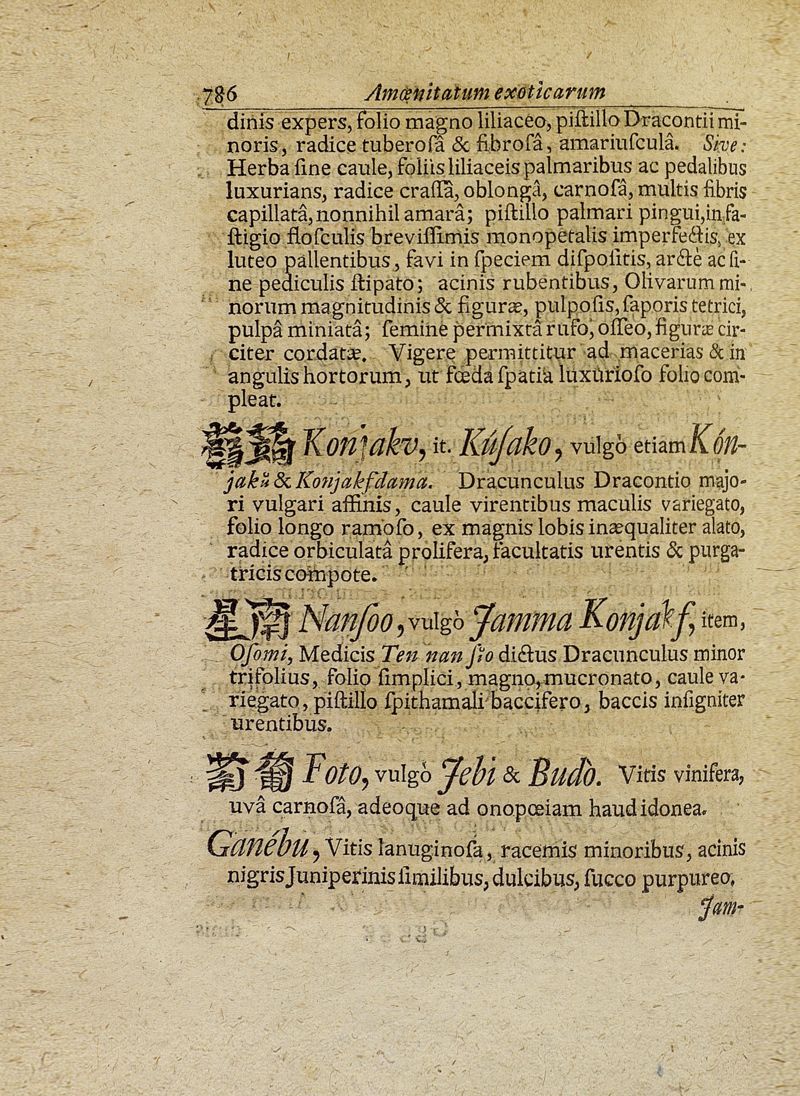 786 Amœnitatum exoticarum
dinis expers, folio magno liliaceo, piſtillo Dracontii mi-
noris, radice tuberoſâ & fibroſâ, amariuſculâ. Sive:
Herba ſine caule, foliis liliaceis palmaribus ac pedalibus
luxurians, radice craſſâ, oblongâ, carnoſâ, multis fibris
capillatâ, nonnihil amarâ; piſtillo palmari pingui, in fa-
ſtigio floſculis breviſſimis monopetalis imperfectis, ex
luteo pallentibus, favi in ſpeciem diſpoſitis, arctè ac ſi-
ne pediculis ſtipato; acinis rubentibus, Olivarum mi-
norum magnitudinis & figuræ, pulpoſis, ſaporis tetrici,
pulpâ miniatâ; ſemine permixtâ rufo, oſſeo, figuræ cir-
citer cordatæ. Vigere permittitur ad macerias & in
angulis hortorum, ut fœda ſpatia luxurioſo folio com-
pleat.
蒟蒻 Konjakv, it. Kúſako, vulgò etiam Kón-
jakũ & Konjakſdama. Dracunculus Dracontio majo-
ri vulgari affinis, caule virentibus maculis variegato,
folio longo ramoſo, ex magnis lobis inæqualiter alato,
radice orbiculatâ prolifera, facultatis urentis & purga-
tricis compote.
星南 Nanſoo, vulgò Jamma Konjakf, item,
Oſomi, Medicis Ten nan ſio dictus Dracunculus minor
trifolius, folio ſimplici, magno, mucronato, caule va-
riegato, piſtillo ſpithamali baccifero, baccis inſigniter
urentibus.
萄葡 Foto, vulgò Jebi & Budo. Vitis vinifera,
uvâ carnoſâ, adeoque ad onopœiam haud idonea.
Ganébu, Vitis lanuginoſa, racemis minoribus, acinis
nigris Juniperinis ſimilibus, dulcibus, ſucco purpureo.
Jam-